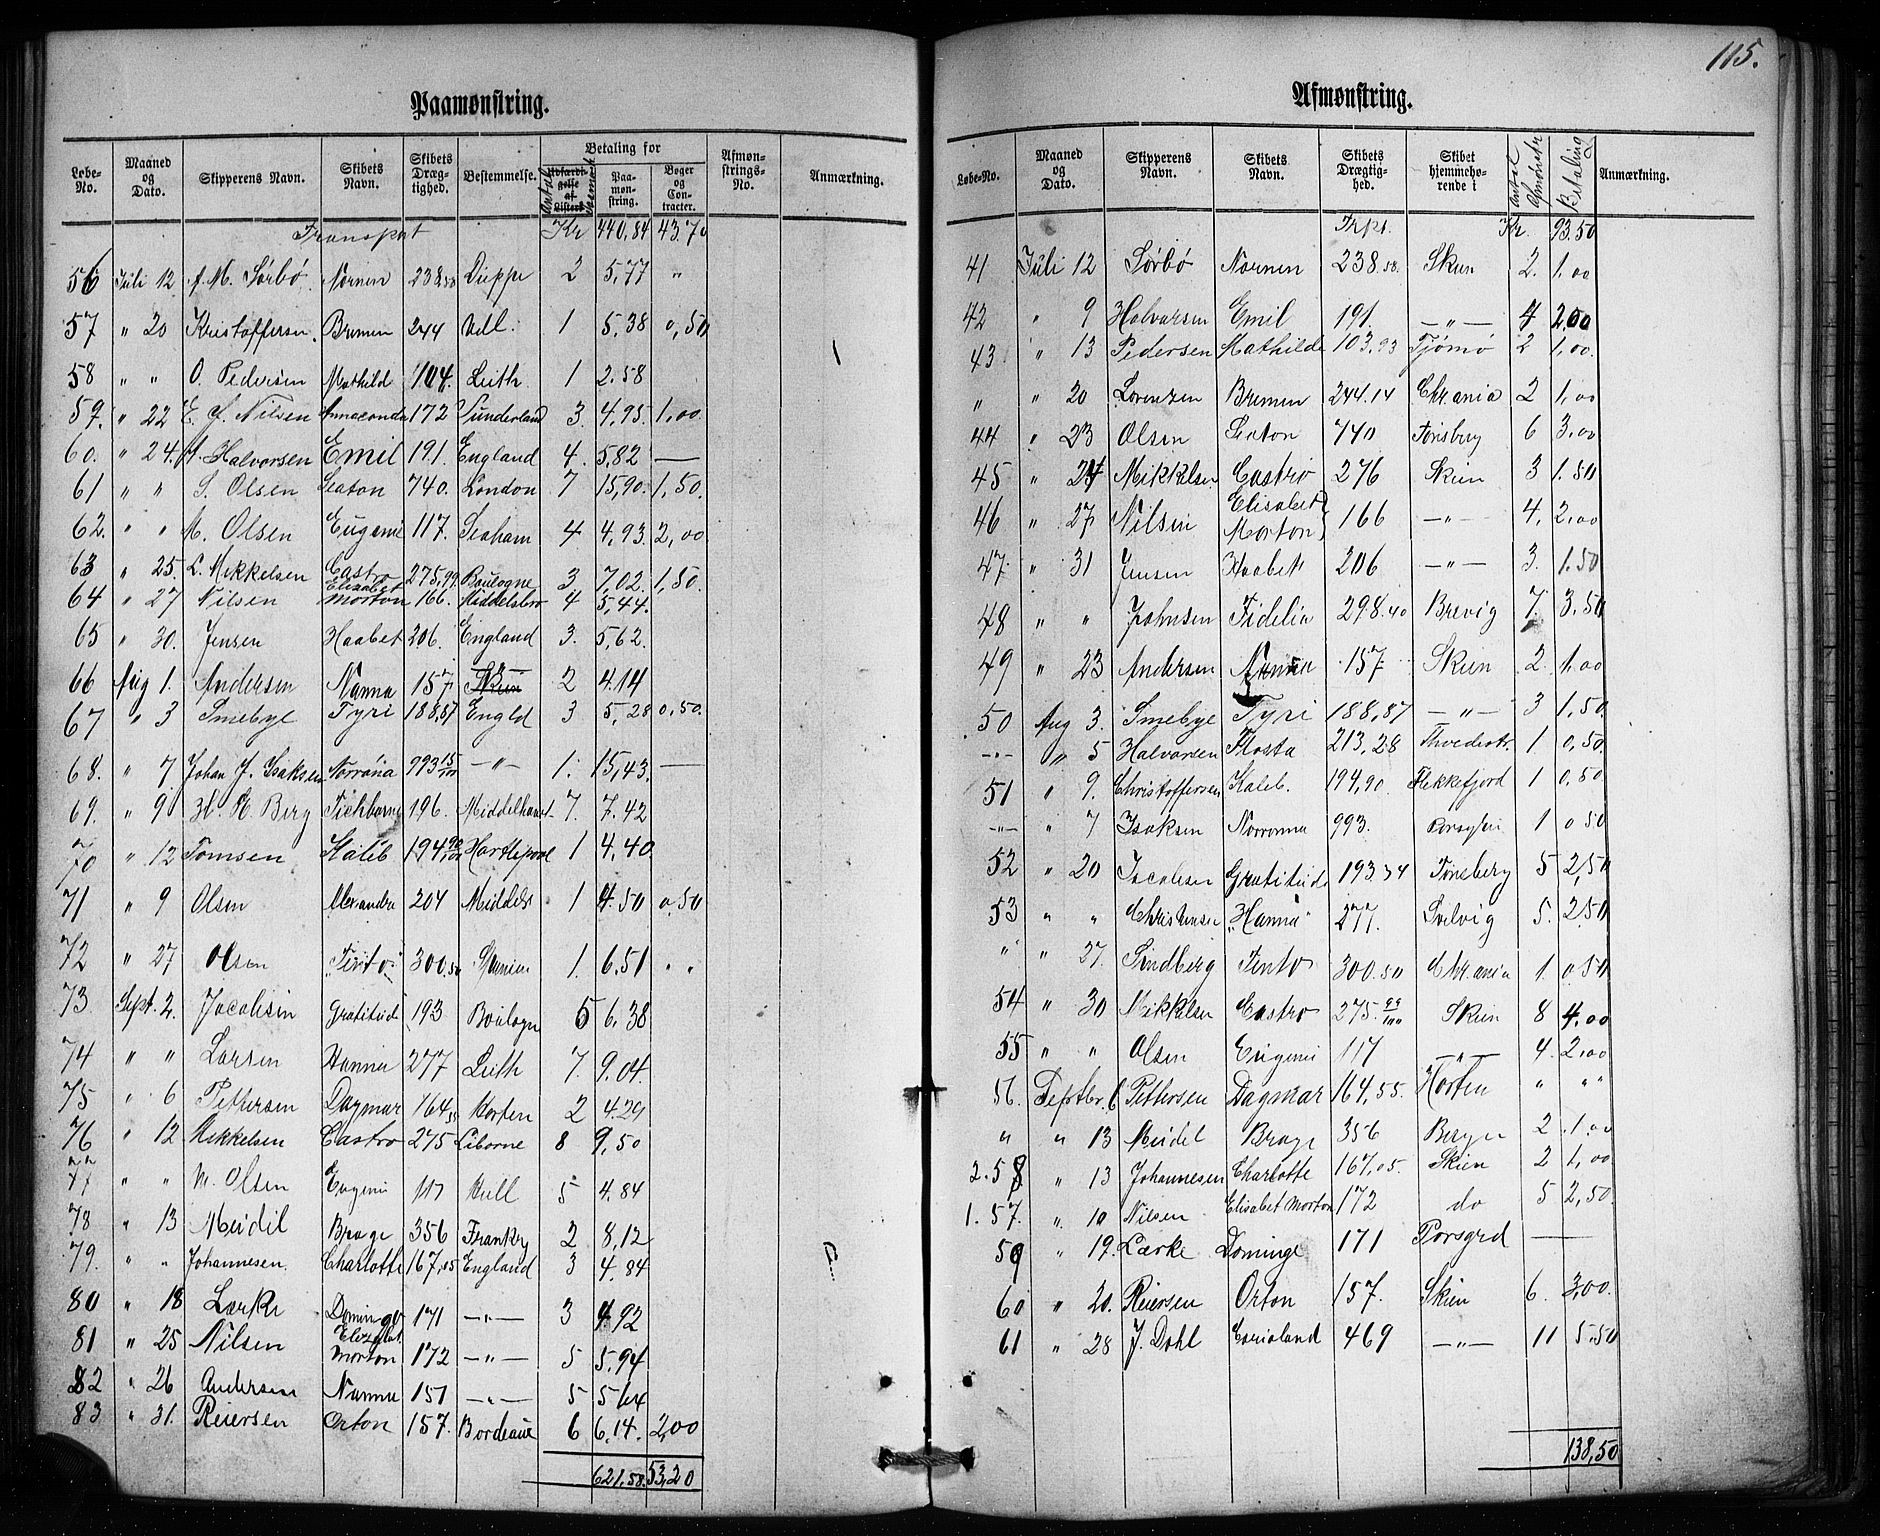 115.
Paamønstring.
Løbe-No. Maaned og Dato. Skipperens Navn. Skibets Navn. Skibets Drægtighed. Bestemmelse. Betaling for Udfærdigelse af Lister Antal Paamønstring. Bøger og Contracter. Afmønstrings-No. Anmærkning.
Transport Kr 440,84 43.70
56 Juli 12 A. M. Sørbö Nornen 238,50 Dieppe 2 5,77 "
57 " 20 Kristoffersen Bremen 244 Hull 1 5,38 0,50
58 " " O. Pedersen Mathild 104. Leith 1 2.58
59. " 22 E. A. Nilsen Annaconda 172 Sunderland 3. 4,95 1,00
60. " 24. A. Halvorsen Emil 191. England 4. 5,82 —
61 " " S. Olsen Seaton 740. London 7 15,90 1,50.
62. " " M. Olsen Eugenie 117. Seaham 4 4,93. 2,00
63 " 25. L. Mikkelsen Castro 275,99 Boulogne 3 7,02. 1,50.
64 " 27 Nilsen Elizabet Morton 166. Middelsbro 4 5,44.
65 " 30. Jensen Haabet 206. England 3. 5,62.
66 Aug 1. Andersen Nanna 157 Skien — " — 2 4.14
67 " 3 Smebye Tyri 188,87 Engld 3 5,28 0,50.
68. " 7 Johan J. Isaksen Norrøna 993 15/100 — " — 1. 15,43. —
69. " 9 H. H. Berg Tichborne 196. Middelhavet 7. 7.42
70 " 12 Tomsen Kaleb 194 90/100 Hartlepool 1 4.40.
71 " 9 Olsen Alexandra 204 Middelsb 1 4.50 0,50
72 " 27 Olsen Tento 300.50 Spanien 1. 6.51 " "
73 Sept. 2. Jacobsen Gratitude 193 Boulogn 5 6.38
74 " " Larsen Hanna 277 Leith 7. 9.04.
75 " 6 Pettersen Dagmar 164,55 Horten 2 4.29
76 " 12 Mikkelsen Castro 275 Liborne 8 9,50
77 " " M. Olsen Eugenie 117 Hull 5 4.84
78 " 13 Meidel Brage 356 Frankr 2 8,12
79. " " Johannesen. Charlotte 167,05 England 3 4,84
80 " 18 Lærke Domingo 171 — " — 3 4.92
81 " 25 Nilsen Elizabet Morton 172 — " — 5 5.94
82 " 26 Andersen Nanna 157 — " — 5 5 64
83 " 31. Reiersen Orton 157. Bordeaux 6 6.14. 2,00
621.58. 53,20
Afmønstring.
Løbe-No. Maaned og Dato. Skipperens Navn. Skibets Navn. Skibets Drægtighed. Skibet hjemmehørende i Antal Afmønstr Betaling Anmærkning.
Trpt. Kr. 93.50
41 Juli 12 Sørbö Nornen 238.58. Skien 2. 1.00
42 " 9 Halvorsen Emil 191. — " — 4 2,00
43 " 13 Pedersen Mathilde 103,93 Tjømø 2 1,00.
" " 20 Lorenzen Bremen 244.14 Chr.ania 2 1,00
44 " 23 Olsen Seaton 740 Tønsberg 6 3.00
45 " 24 Mikkelsen Castro 276 Skien 3 1.50
46 " 27 Nilsen Elisabeth Morton 166 — " — 4. 2,00
47 " 31 Jensen Haabet 206 — " — 3. 1.50
48 " " Johnsen Fidelia 298.40 Brevig 7. 3.50
49 " 23 Andersen Nanna 157 Skien 2. 1.00
50 Aug 3. Smebye Tyri 188,87 — " — 3 1,50.
— " — " 5 Halvorsen Flosta 213,28 Thvedestr. 1 0,50.
51 " 9. Christoffersen Kaleb. 194,90. Flekkefjord 1 0,50
— " — " 7 Isaksen Norrønna 993. Porsgrn 1 0 50
52 " 20 Jacobsen Gratitude 193.34 Tønsberg 5 2,50
53 " " Christensen "Hanna" 277. Svelvig 5. 2.50
" " 27. Lindberg Tento 300.50 Chr.ania 1. 0.50
54 " 30 Mikkelsen Castro 275.99/100 Skien 8 4.00
55 " " Olsen Eugenie 117 — " — 4. 2.00
56. Septbr. 6 Pettersen Dagmar 164,55. Horten " " "
" " 13 Meidel Brage 356 Bergen 2 1.00
2.58 " 13 Johannesen Charlotte 167,05. Skien 2 1,00
1.57. " 10 Nilsen Elisabet Morton 172 do 5 2,50.
59 " 19. Lærke Dominge 171 Porsgrd —
60 " 20. Reiersen Orton 157. Skien 6. 3,00.
61 " 28 J. Dahl 469 — " — 11 5.50
138,50